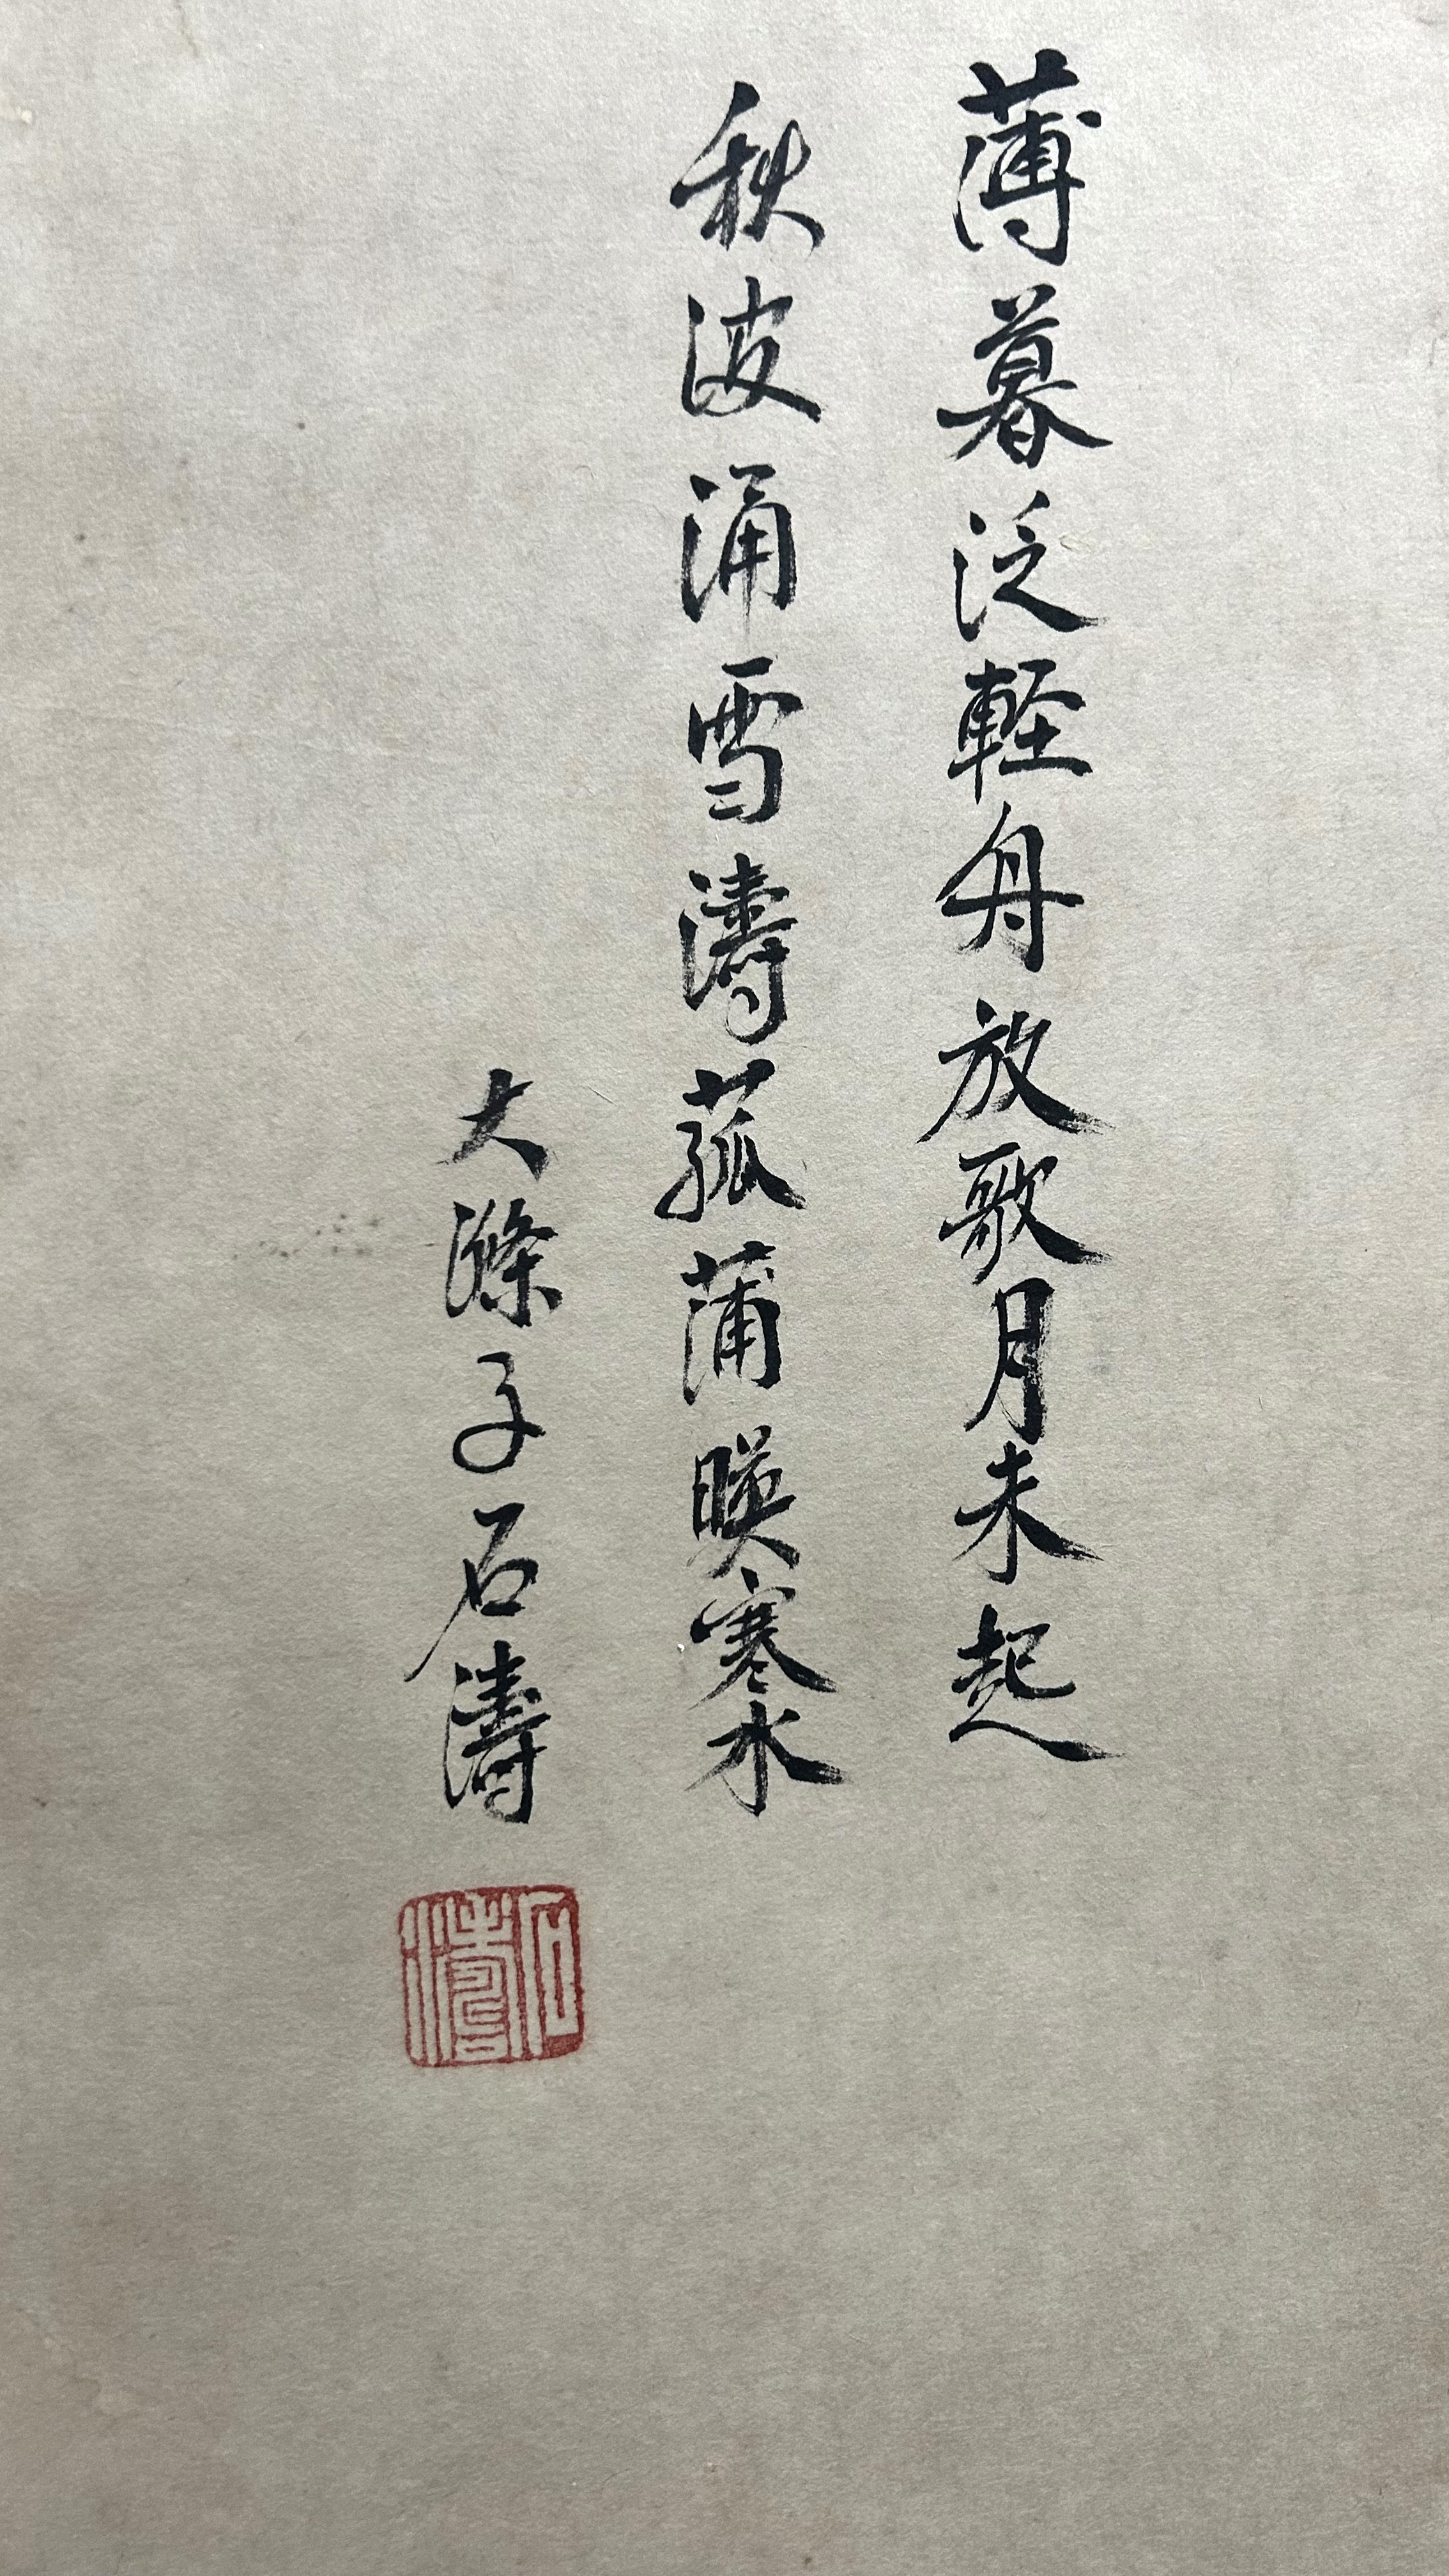 薄暮泛軽舟放歌月未起
秋波涌雪濤菰蒲暎寒水
大滌子石濤
石濤